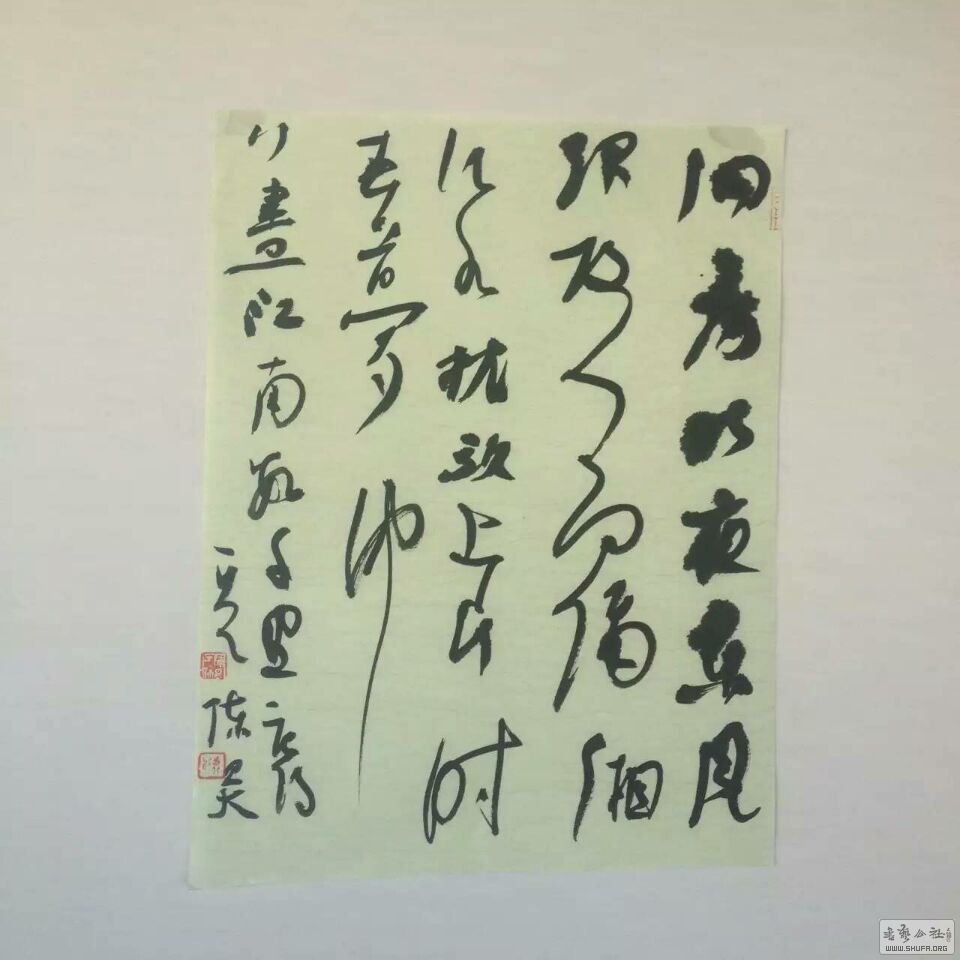 洞房昨夜春风
起故人尚隔湘
江水枕上片时
春梦中
行尽江南数千里唐诗
一首
陈
书艺公社
WWW.SHUFA.ORG